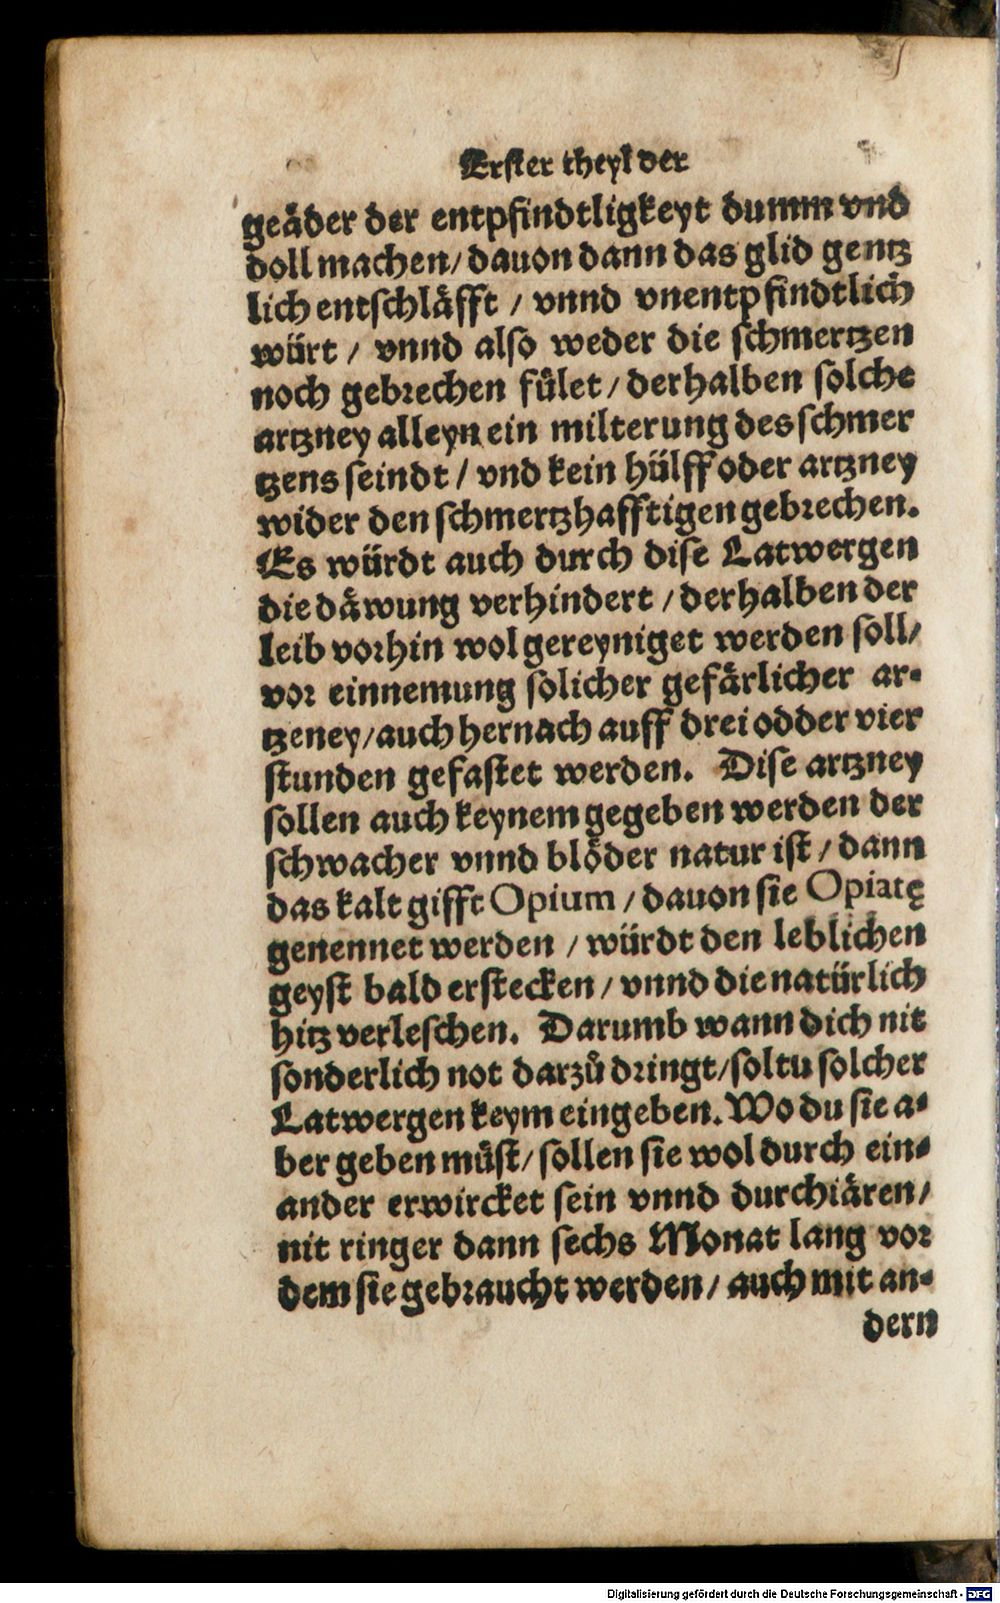 Erster theyl der
geäder der entpfindtligkeyt dumm vnd
doll machen/ dauon dann das glid gentz
lich entschläfft / vnnd vnentpfindtlich
würt / vnnd also weder die schmertzen
noch gebrechen fület / derhalben solche
artzney alleyn ein milterung des schmer
tzens seindt / vnd kein hülff oder artzney
wider den schmertzhafftigen gebrechen.
Es würdt auch durch dise Latwergen
die däwung verhindert / derhalben der
leib vorhin wol gereyniget werden soll/
vor einnemung solicher gefärlicher ar-
tzeney/ auch hernach auff drei odder vier
stunden gefastet werden. Dise artzney
sollen auch keynem gegeben werden der
schwacher vnnd blöder natur ist / dann
das kalt gifft Opium / dauon sie Opiatę
genennet werden / würdt den leblichen
geyst bald erstecken / vnnd die natürlich
hitz verleschen. Darumb wann dich nit
sonderlich not darzů dringt/ soltu solcher
Latwergen keym eingeben. Wo du sie a-
ber geben můst/ sollen sie wol durch ein-
ander erwircket sein vnnd durchiären/
nit ringer dann sechs Monat lang vor
dem sie gebraucht werden / auch mit an-
dern
Digitalisierung gefördert durch die Deutsche Forschungsgemeinschaft - DFG